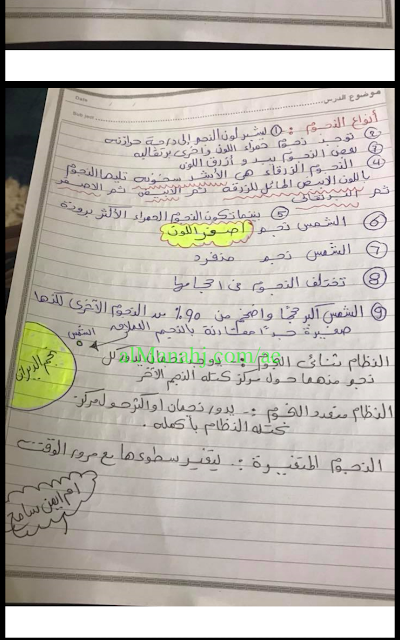 Date
موضوع الدرس
أنواع النجوم : ① يشير لون النجم إلى درجة حرارته
② توجد نجوم حمراء اللون وأخرى برتقالية
③ بعض النجوم يبدو أزرق اللون
④ النجوم الزرقاء هي الأشد سخونة تليها النجوم
باللون الأبيض المائل للزرقة ثم الأبيض ثم الأصفر
ثم البرتقالي ⑤ بينما تكون النجوم الحمراء الأكثر برودة
⑥ الشمس نجم أصفر اللون
⑦ الشمس نجم منفرد
⑧ تختلف النجوم في أحجامها
⑨ الشمس أكبر حجمًا وأضخم من 90% من النجوم الأخرى لكنها
صغيرة جدًا مقارنة بالنجوم العملاقة
الشمس
نجم الدبران
almanahj.com.ae
النظام ثنائي النجوم :- يدور كل
نجم منهما حول مركز كتلة النجم الآخر
النظام متعدد النجوم :- يدور نجمان أو أكثر حول مركز
كتلة النظام بأكمله .
النجوم المتغيرة :- يتغير سطوعها مع مرور الوقت
أم أيمن سامح